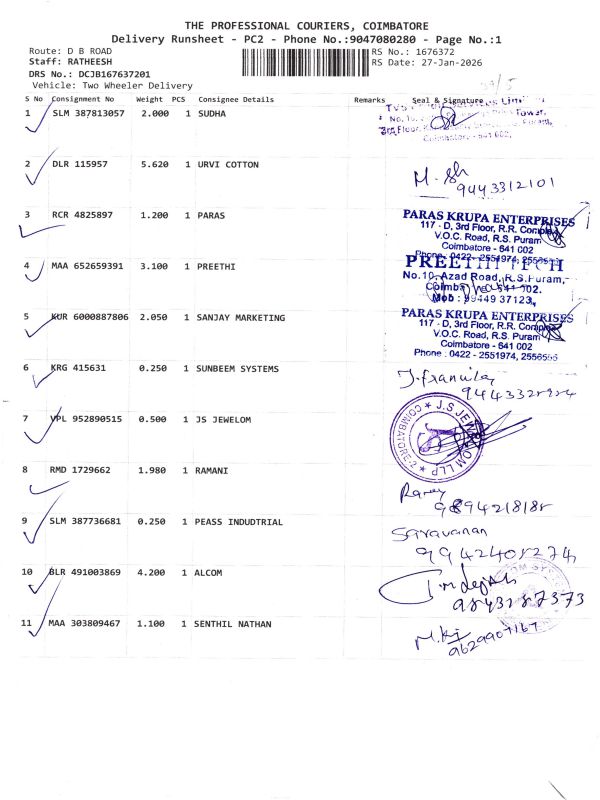 THE PROFESSIONAL COURIERS, COIMBATORE
Delivery Runsheet - PC2 - Phone No.:9047080280 - Page No.:1
Route: D B ROAD
RS No.: 1676372
Staff: RATHEESH
RS Date: 27-Jan-2026
DRS No.: DCJB167637201
Vehicle: Two Wheeler Delivery
S No Consignment No Weight PCS Consignee Details Remarks Seal & Signature
1 SLM 387813057 2.000 1 SUDHA
Tower,
3rd Floor, Puram,
Coimbatore - 641 002.
2 DLR 115957 5.620 1 URVI COTTON
9443312101
3 RCR 4825897 1.200 1 PARAS
PARAS KRUPA ENTERPRISES
117 - D, 3rd Floor, R.R. Complex
V.O.C. Road, R.S. Puram
Coimbatore - 641 002
Phone : 0422 - 2551974, 2556555
4 MAA 652659391 3.100 1 PREETHI
PREETHI TECH
No.10, Azad Road, R.S.Puram,
Coimbatore - 641 002.
Mob : 99449 37123,
5 KUR 6000887806 2.050 1 SANJAY MARKETING
PARAS KRUPA ENTERPRISES
117 - D, 3rd Floor, R.R. Complex
V.O.C. Road, R.S. Puram
Coimbatore - 641 002
Phone : 0422 - 2551974, 2556555
6 KRG 415631 0.250 1 SUNBEEM SYSTEMS
7 VPL 952890515 0.500 1 JS JEWELOM
J.S JEWELOM LLP
COIMBATORE-2
8 RMD 1729662 1.980 1 RAMANI
9894218188
9 SLM 387736681 0.250 1 PEASS INDUDTRIAL
Saravanan
9942408274
10 BLR 491003869 4.200 1 ALCOM
9843187373
11 MAA 303809467 1.100 1 SENTHIL NATHAN
9629907167